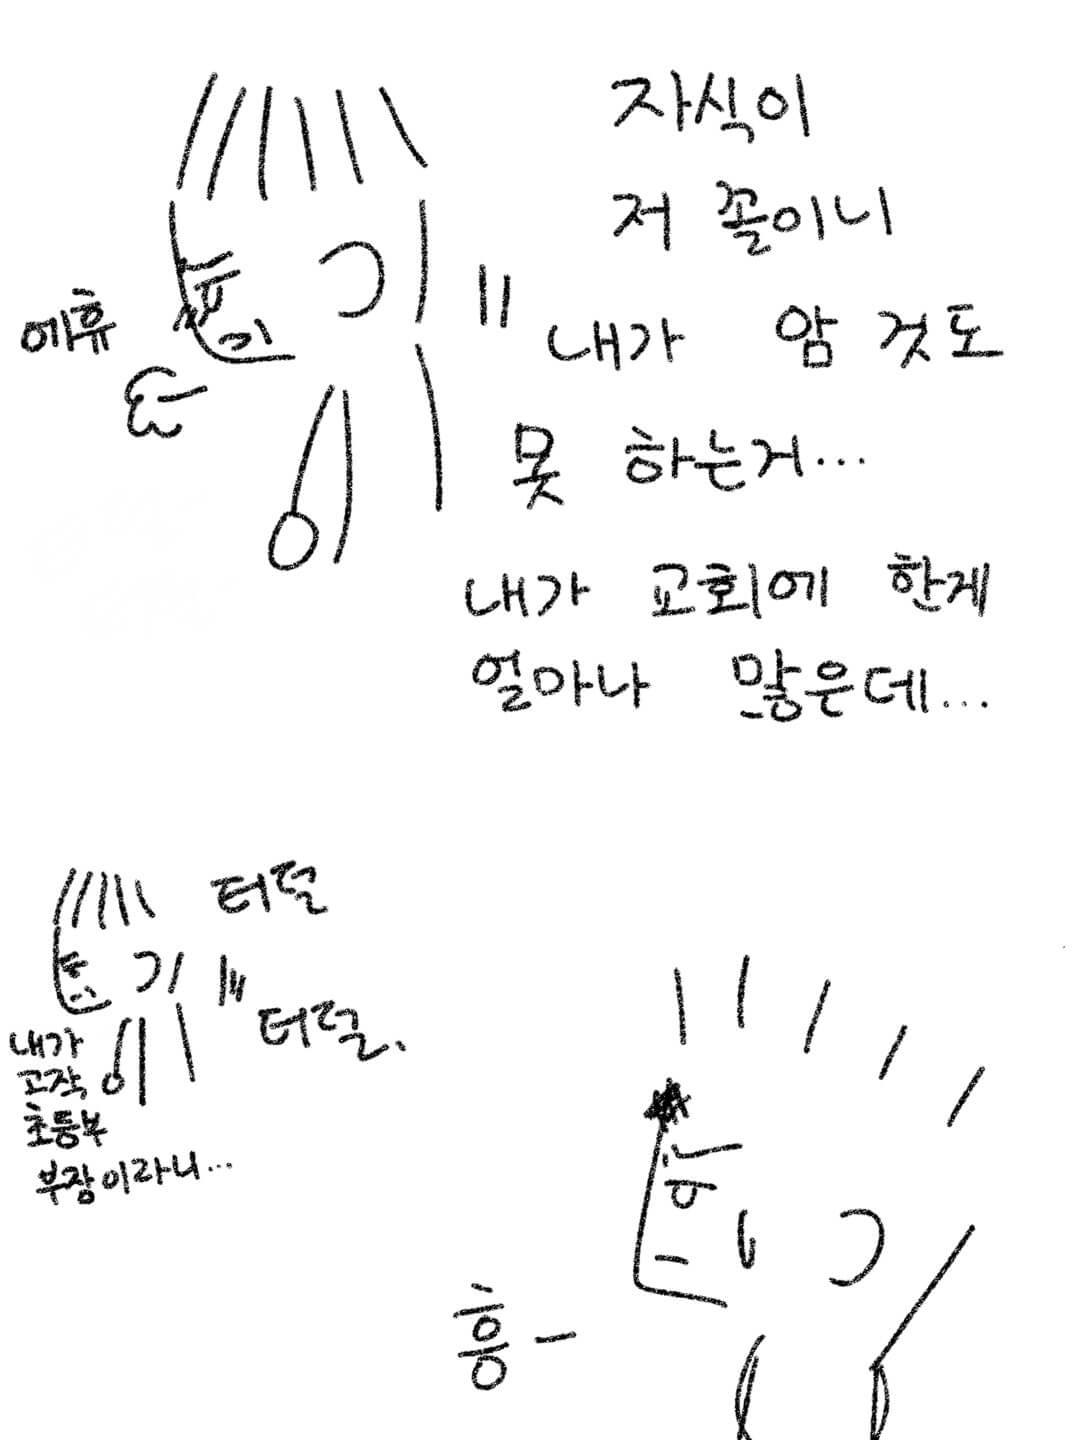 자식이
저 꼴이니
에휴
내가 암 것도
못 하는거...
내가 교회에 한게
얼마나 많은데...
터덜
터덜.
내가
고작
초등부
부장이라니...
흥-